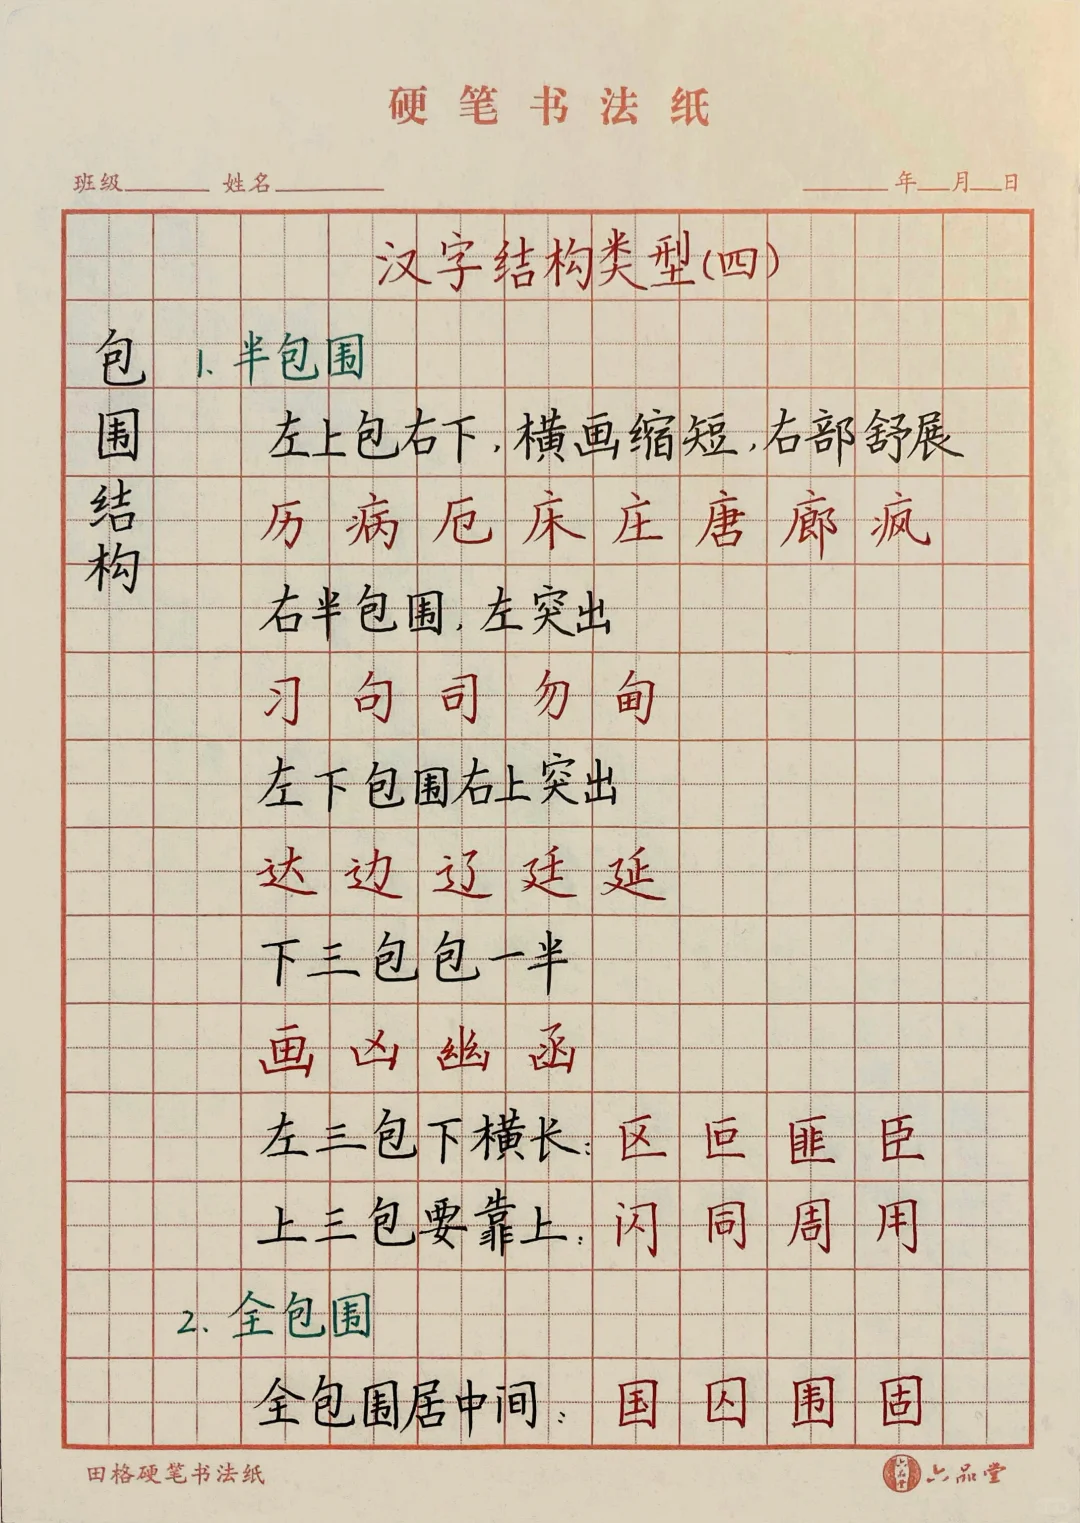 硬笔书法纸
班级______ 姓名______ ______年__月__日
汉字结构类型(四)
包围结构
1.半包围
左上包右下,横画缩短,右部舒展
历 病 厄 床 庄 唐 廊 疯
右半包围,左突出
习 句 司 勿 甸
左下包围右上突出
达 边 辽 廷 延
下三包包一半
画 凶 幽 函
左三包下横长:区 叵 匪 臣
上三包要靠上:闪 同 周 用
2.全包围
全包围居中间:国 囚 围 固
田格硬笔书法纸
六品堂 六品堂